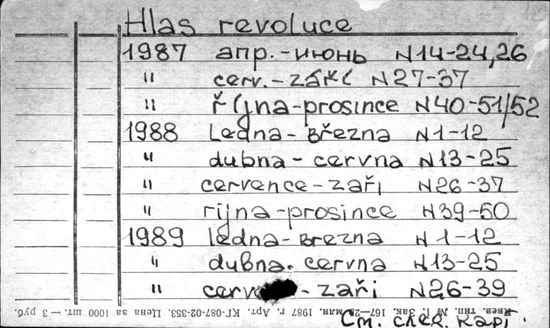 Hlas revoluce
1987 апр.-июнь N14-24,26
" cerv.-září N27-37
" října-prosince N40-51/52
1988 Ledna-Března N1-12
" dubna-cervna N13-25
" července-zaři N26-37
" rijna-prosince N39-50
1989 ledna-Brezna N1-12
" dubna-cervna N13-25
" zaři N26-39
См. след. карт.
Г. Зак. 167—2 млн. 1987 г. Арт. КГ-087-02-353. Цена за 1000 шт. — 3 руб.